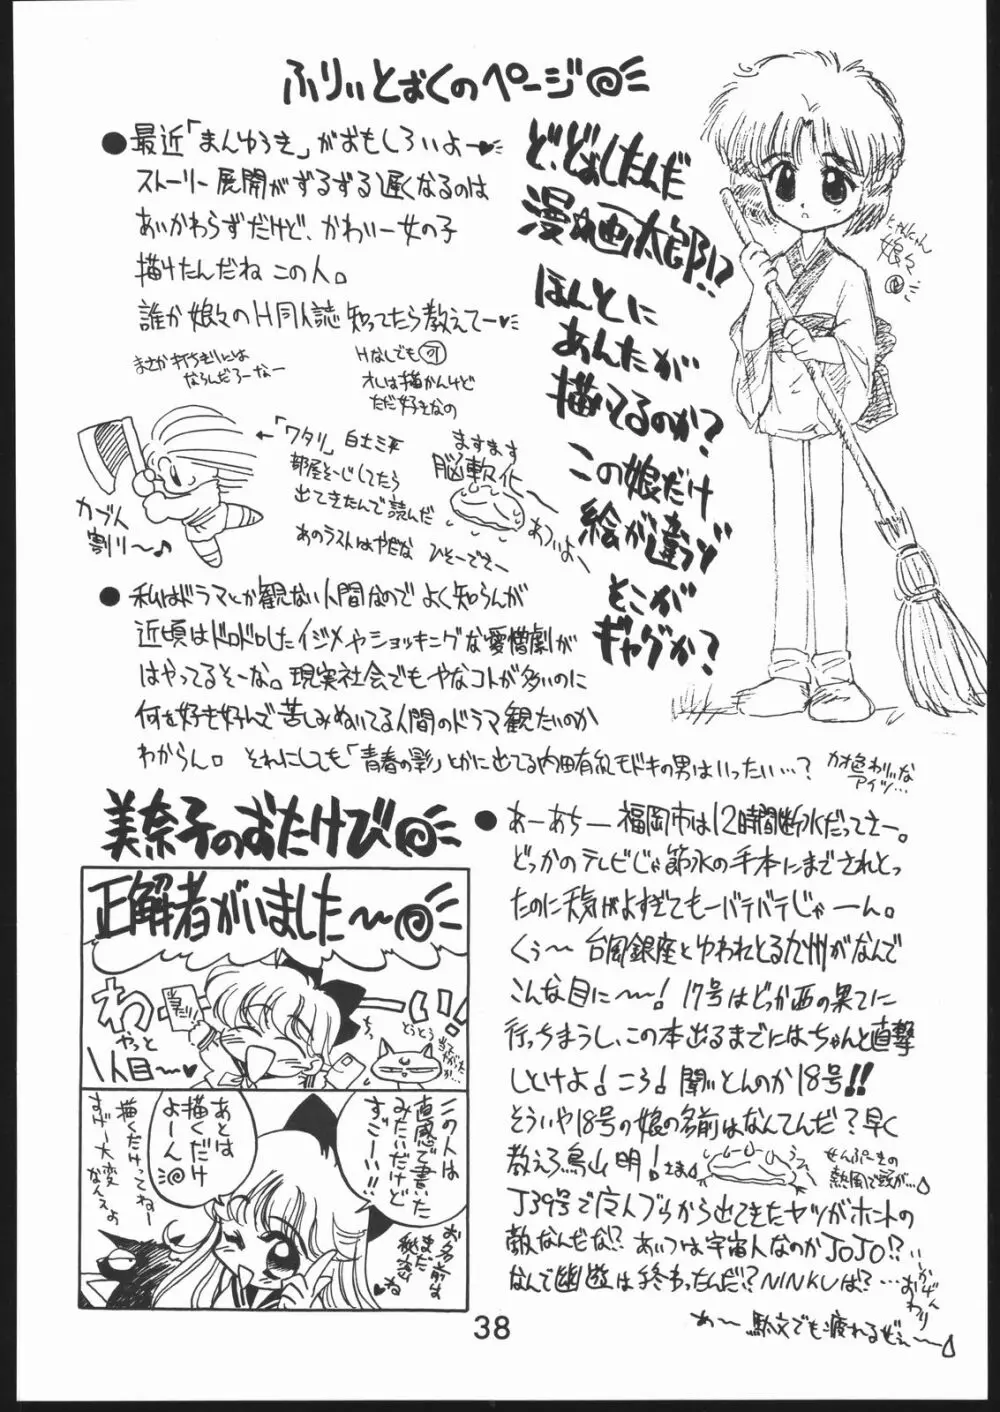 ふりぃとーくのページ
●最近「まんゆうき」がおもしろいよー♥
ストーリー展開がずるずる遅くなるのは
あいかわらずだけど、かわいー女の子
描けたんだね この人。
誰か娘々のH同人誌知ってたら教えてー♥
まさか打ちぎりには
ならんだろーなー
Hなしでも可
オレは描かんけど
ただ好きなの
ど、どぉしたんだ
漫☆画太郎!?
ほんとに
あんたが
描いてるのか?
この娘だけ
絵が違うぞ
そこが
ギャグか?
にゃんにゃん
娘々
←「ワタリ」白土三平
部屋そーじしてたら
出てきたんで読んだ
あのラストはやだな
ひそーでさー
カブト
割り〜♪
ますます
脳軟化〜
あついよ〜
●私はドラマとか観ない人間なのでよく知らんが
近頃はドロドロしたイジメやショッキングな愛憎劇が
はやってるそーな。現実社会でもやなコトが多いのに
何を好き好んで苦しみぬいてる人間のドラマ観たいのか
わからん。それにしても「青春の影」とかに出てる内田有紀モドキの男はいったい…?
カオ色わりぃな
アイツ…
美奈子のおたけび
正解者がいました〜
わーーい!
やっと
1人目〜♥
当たり!
とうとう
当てられたか…
この人は
直感で書いた
みたいだけど
すごーい!!
あとは
描くだけ
よーん
描くだけってねー
すげー大変
なんよぉ
お名前は
まだ
秘密
●あーあちー 福岡市は12時間断水だってさー。
どっかのテレビじゃ節水の手本にまでされとっ
たのに天気がよすぎてもーバテバテじゃーん。
くぅ〜 台風銀座とゆわれとる九州がなんで
こんな目に〜〜! 17号はどっか西の果てに
行っちまうし、この本出るまでにはちゃんと直撃
しとけよ! ころ! 聞いとんのか18号!!
そういや18号の娘の名前はなんてんだ? 早く
教えろ鳥山明!さま
せんぷーきの
熱風で頭が…
J39号で庭人ブウから出てきたヤツがホントの
敵なんだな!? あいつは宇宙人なのかJOJO!?
なんで幽遊は終わったんだ!? NINKUは?…
いいかげん
おわり
あ〜 駄文でも疲れるぜぇ〜
38